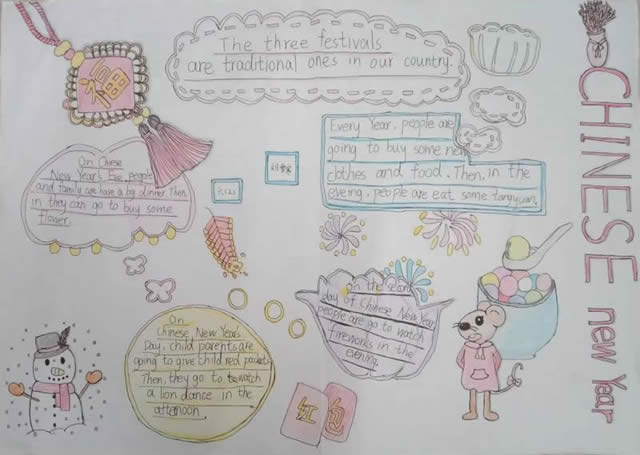 The three festivals
are traditional ones in our country.
CHINESE new Year
福
Every Year, people are
going to buy some new
clothes and food. Then, in the
eveing, people are eat some tangyuan.
On Chinese
New Year's Eve, people
and family are have a big dinner. Then
in they can go to buy some
flower.
On the second
day of Chinese New Year
people are go to watch
fireworks in the
evening.
On
Chinese New Year's
Day, child parents are
going to give child red packets
Then, they go to watch
a lion dance in the
afternoon
红
包